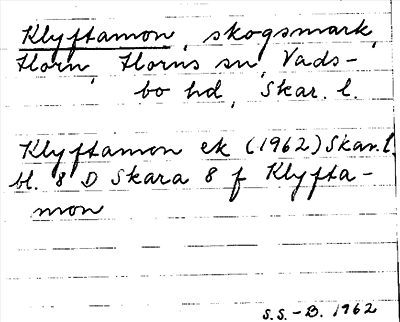 Klyftamon, skogsmark,
Horn, Horns sn, Vads-
bo hd, Skar. l.
Klyftamon ek (1962) Skar. l.
bl. 8 D Skara 8 f Klyfta-
mon
S.S.-B. 1962